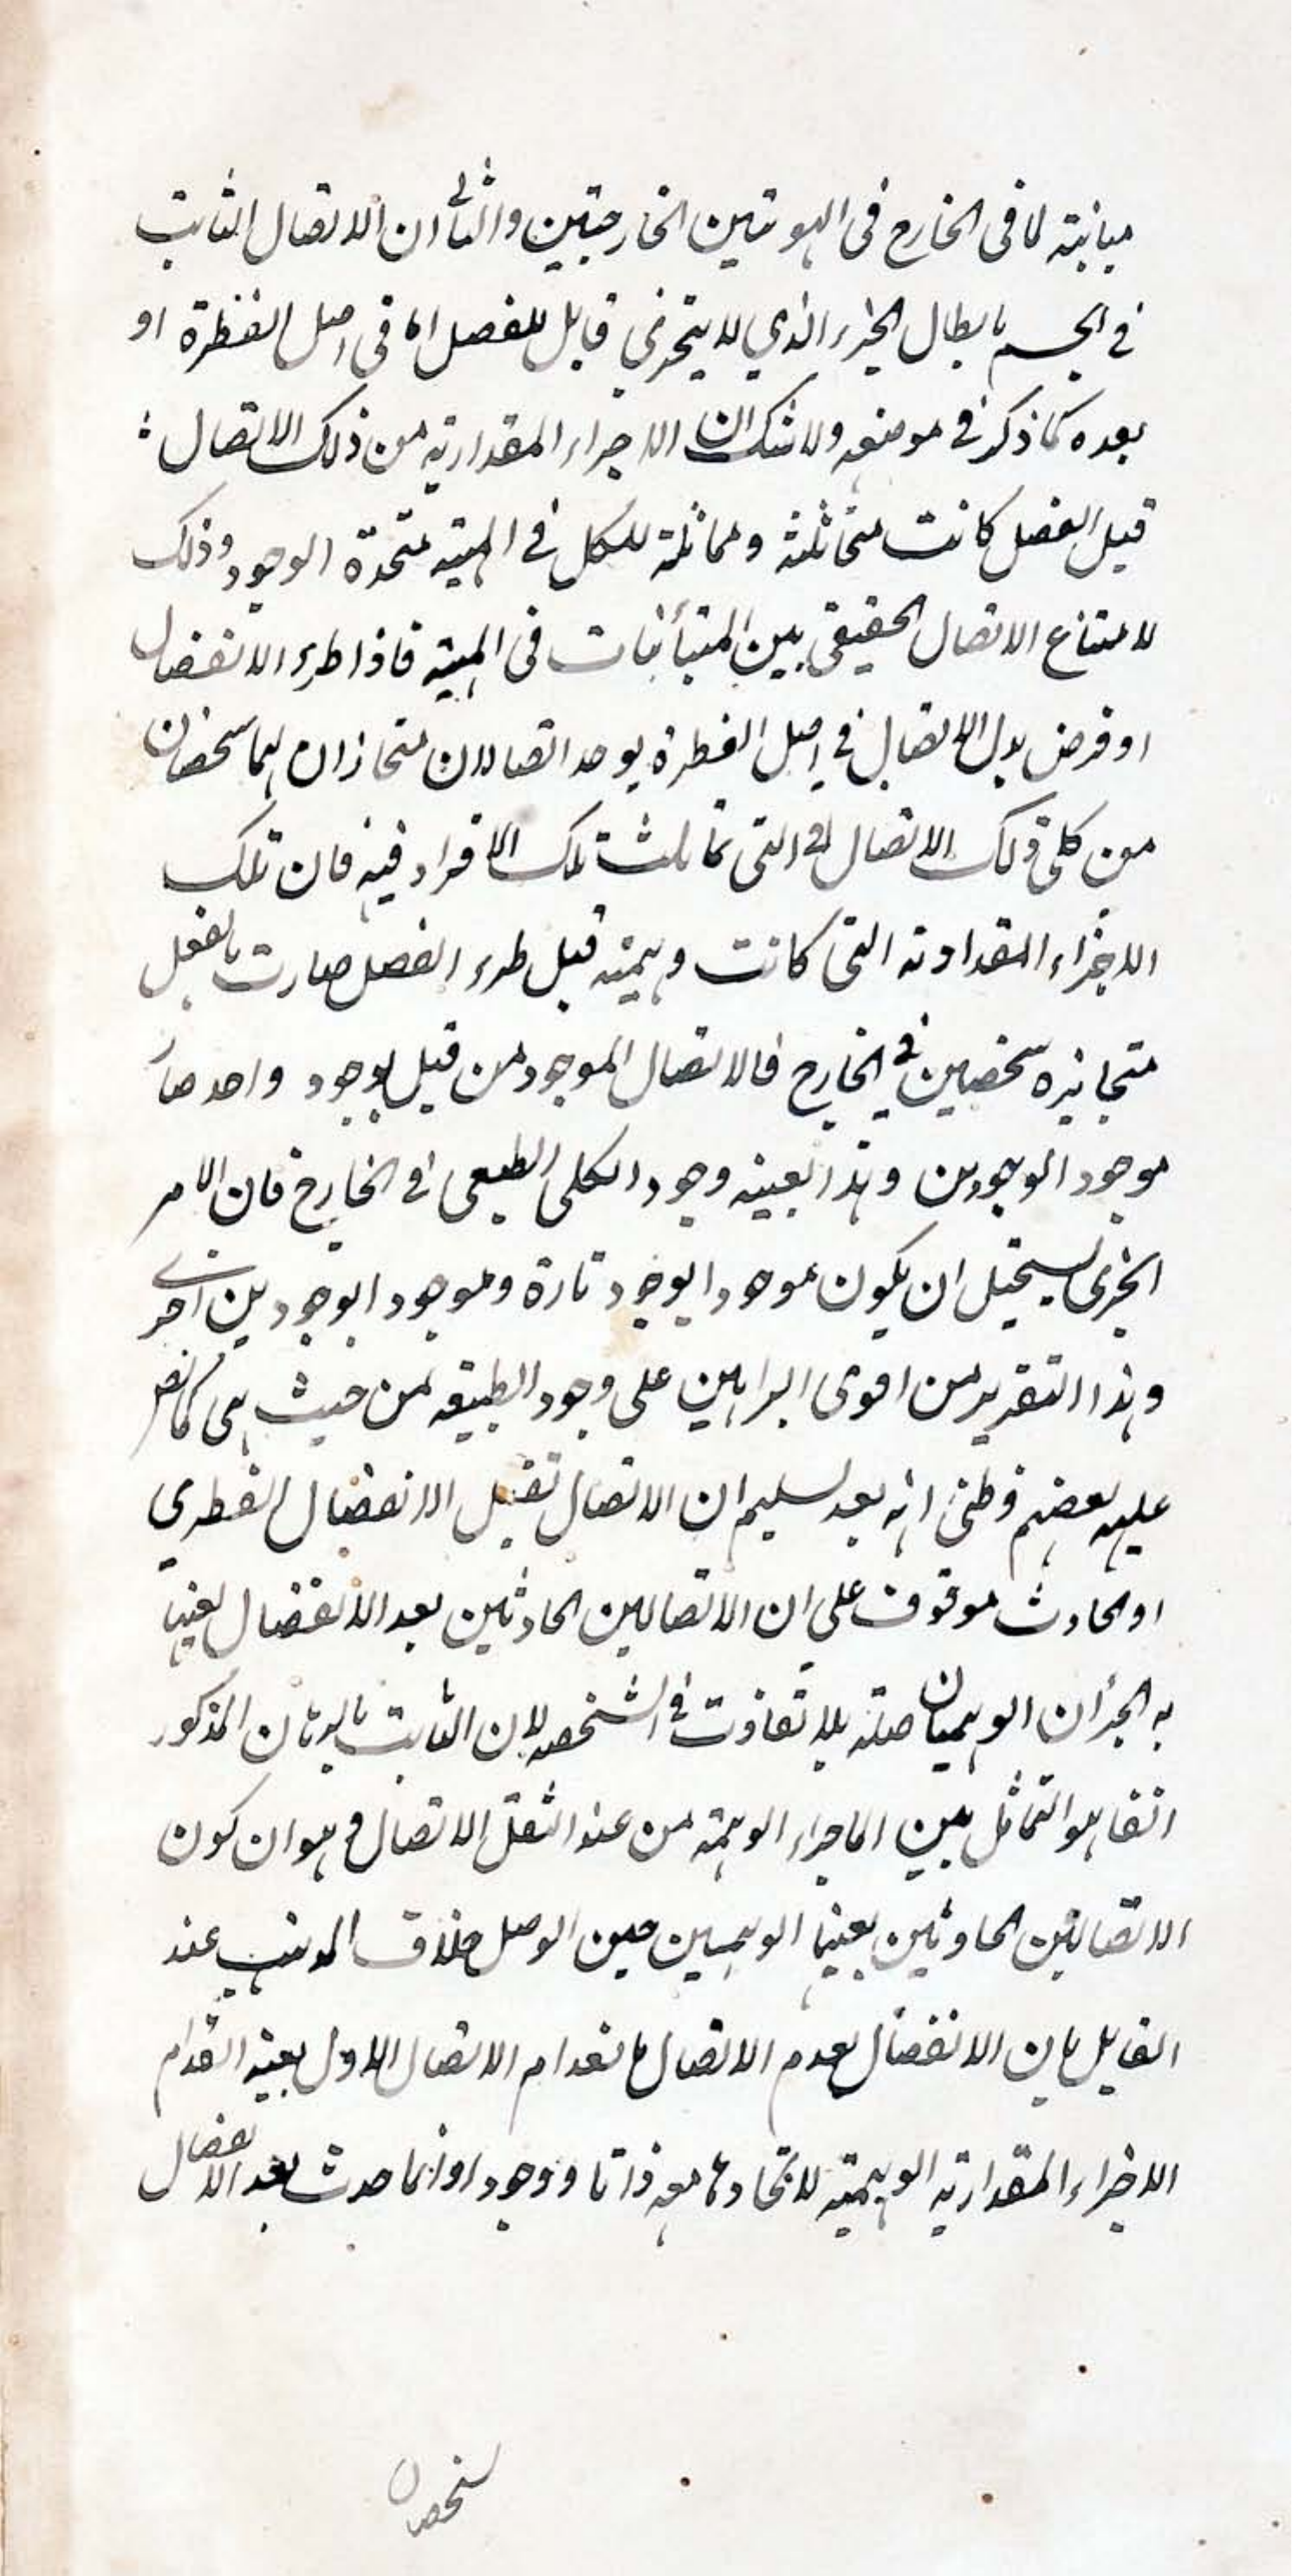 مباينة لا فى الخارج فى الهويتين الخارجتين والثالى ان الاتصال الثابت
فى الجسم بابطال الجزء الذي لا يتجزى قابل للفصل اما فى اصل الفطرة او
بعده كما ذكر فى موضعه ولا شك ان الاجزاء المقدارية من ذلك الاتصال
قبل الفصل كانت متماثلة ومماثلة للكل فى المهية متحدة الوجود وذلك
لامتناع الاتصال الحقيقى بين المتبأنيات فى المهية فاذا طرء الانفصال
او فرض بدل الاتصال فى اصل الفطرة يوجد اتصالان متحازان هما شخصان
من كلى ذلك الاتصال التى تماثلت تلك الافراد فيه فان تلك
الاجزاء المقدارية التى كانت وهمية قبل طرء الفصل صارت بالفعل
متحايزه شخصين فى الخارج فالاتصال الموجود من قبل بوجود واحد صار
موجودا بوجودين وهذا بعينه وجود الكلى الطبيعى فى الخارج فان الامر
الجزى يستحيل ان يكون موجودا بوجود تارة وموجودا بوجودين اخرى
وهذا التقرير من اقوى البراهين على وجود الطبيعة من حيث هى كما نص
عليه بعضهم وظنى انه بعد تسليم ان الاتصال تقبل الانفصال الفطري
او الحادث موقوف على ان الاتصالين الحادثين بعد الانفصال بعينها
به الجزأن الوهميان بلا تفاوت فى الشخصه لان الثابت بالبرهان المذكور
انفا هو التماثل بين الاجزاء الوهمية من عند الاتصال وهو ان كون
الاتصالين الحادثين بعينها الوهميين حين الوصل خلاف المذهب عند
القايل بان الانفصال يعدم الاتصال بانعدام الاتصال الاول بعينه انعدام
الاجزاء المقدارية الوهمية لاتحادها معه ذاتا ووجودا وانما حدث بعد الانفصال
شخصان